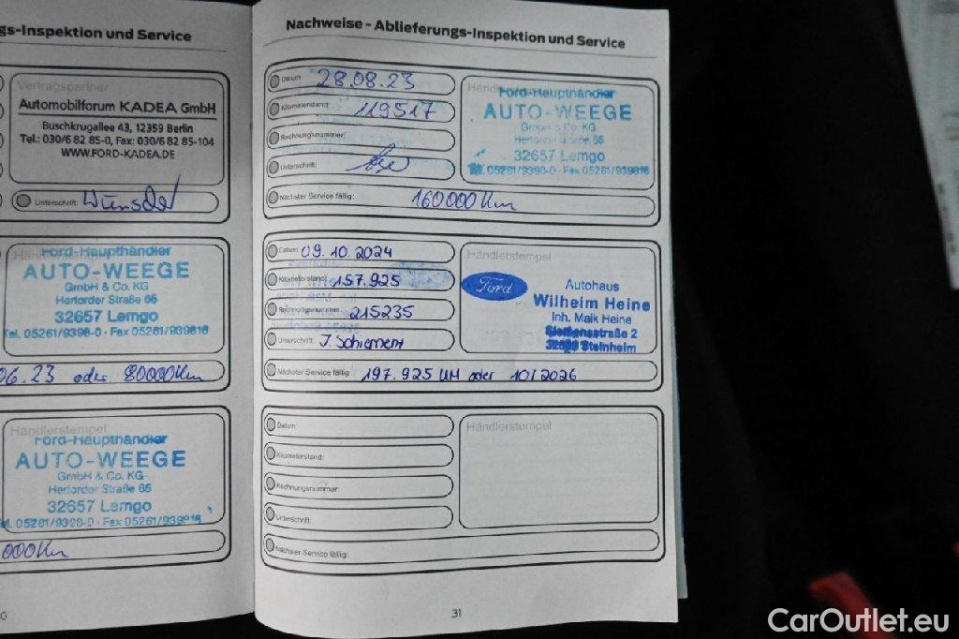 gs-Inspektion und Service
Vertragspartner
Automobilforum KADEA GmbH
Buschkrugallee 43, 12359 Berlin
Tel.: 030/6 82 85-0, Fax: 030/6 82 85-104
WWW.FORD-KADEA.DE
Unterschrift:
Händlerstempel
Ford-Haupthändler
AUTO-WEEGE
GmbH & Co. KG
Herforder Straße 65
32657 Lemgo
Tel. 05261/9398-0 · Fax 05261/939816
06.23 oder 80000Km
Händlerstempel
Ford-Haupthändler
AUTO-WEEGE
GmbH & Co. KG
Herforder Straße 65
32657 Lemgo
Tel. 05261/9398-0 · Fax 05261/939816
000Km
Nachweise - Ablieferungs-Inspektion und Service
Datum: 28.08.23
Kilometerstand: 119517
Rechnungsnummer:
Unterschrift:
Ford-Haupthändler
AUTO-WEEGE
GmbH & Co. KG
Herforder Straße 65
32657 Lemgo
Tel. 05261/9398-0 · Fax 05261/939816
Nächster Service fällig: 160000Km
Datum: 09.10.2024
Kilometerstand: 157.925
Rechnungsnummer: 215235
Unterschrift:
Händlerstempel
Ford
Autohaus
Wilhelm Heine
Inh. Maik Heine
Siemensstraße 2
Steinheim
Nächster Service fällig: 197.925 KM oder 10/2026
Datum:
Kilometerstand:
Rechnungsnummer:
Unterschrift:
Händlerstempel
Nächster Service fällig:
31
CarOutlet.eu